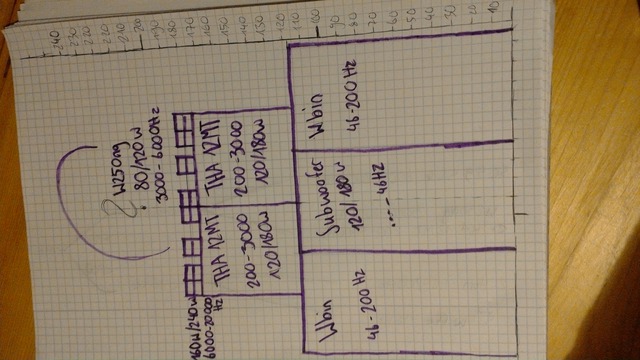 240
230
220
210
200
190
180
170
160
150
140
130
120
110
100
90
80
70
60
50
40
30
20
10
80/120W
3000-6000Hz
160W/240W
6000-20000
Hz
THA 12MT
200-3000
120/180W
THA 12MT
200-3000
120/180W
Wbin
46-200Hz
Subwoofer
120/180W
....-46Hz
Wbin
46-200Hz